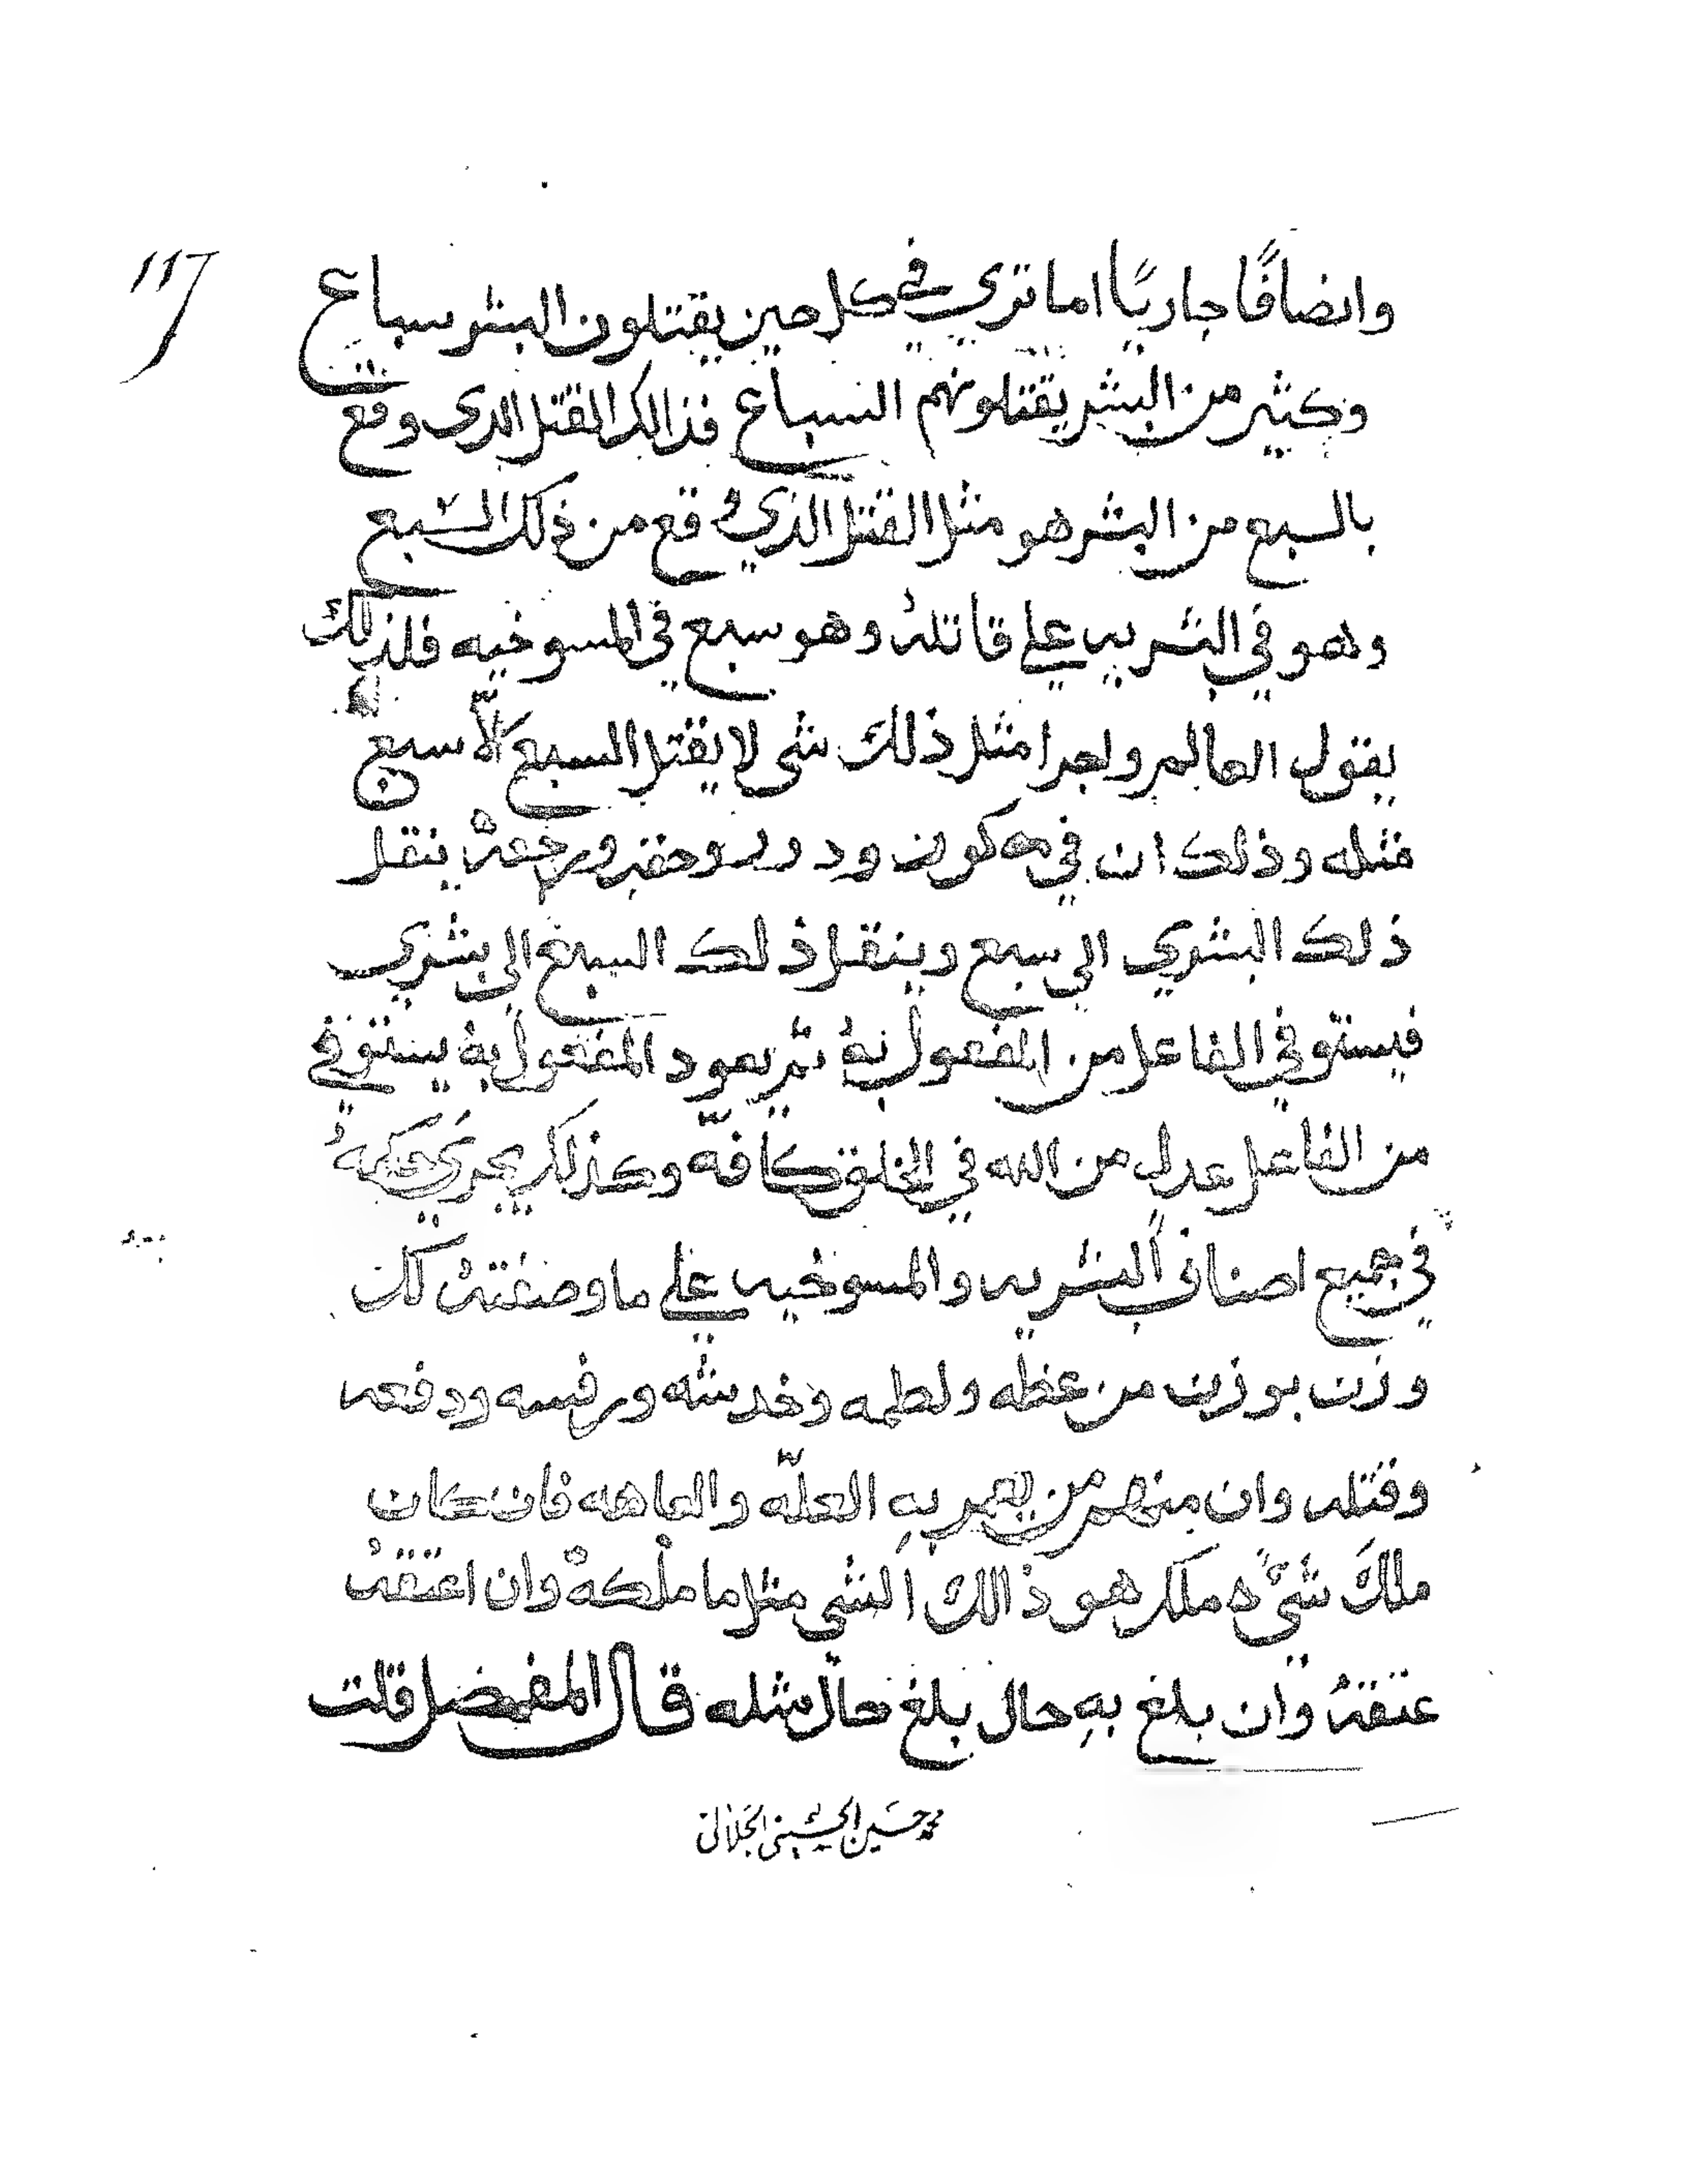 ١١٦
وانصافًا جاريًا اما تري في كل حين يقتلون البشر سباع
وكثير من البشر يقتلونهم السباع فذالك القتل الدي وقع
بالسبع من البشر هو مثل القتل الذي وقع من ذلك السبع
وهو في البشريه علي قاتله وهو سبع في المسوخيه فلذلك
يقول العالم واجرا مثل ذلك شي لا يقتل السبع الّا سبع
مثله وذلك ان في كون ودور ورجعة ينقل
ذلك البشري الي سبع وينقل ذلك السبع الي بشري
فيستوفي الفاعل من المفعول به ثم يعود المفعول به يستوفي
من الفاعل عدل من الله في الخلق كافّه وكذلك يجري حكمه
في جميع اصناف البشريه والمسوخيه علي ما وصفته لك
وزن بوزن من عظه ولطمه وخدشه ورفسه ودفعه
وقتله وان منهم من به العلّه والعاهه فان كان
ملك شيء ملك هو ذالك الشي مثل ما ملكه وان اعتقه
عتقه وان بلغ به حال بلغ حال مثله قال المفضل قلت
محمد حسين الحسيني الجلالي